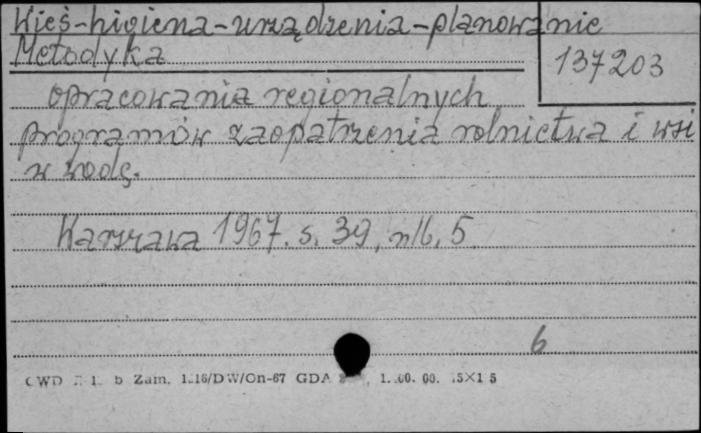 Wieś-higiena-urządzenia-planowanie
Metodyka
137203
opracowania regionalnych
programów zaopatrzenia rolnictwa i wsi
w wodę.
Warszawa 1967. s. 39, nlb. 5
6
CWD b Zam. 1.16/DW/On-67 GDA